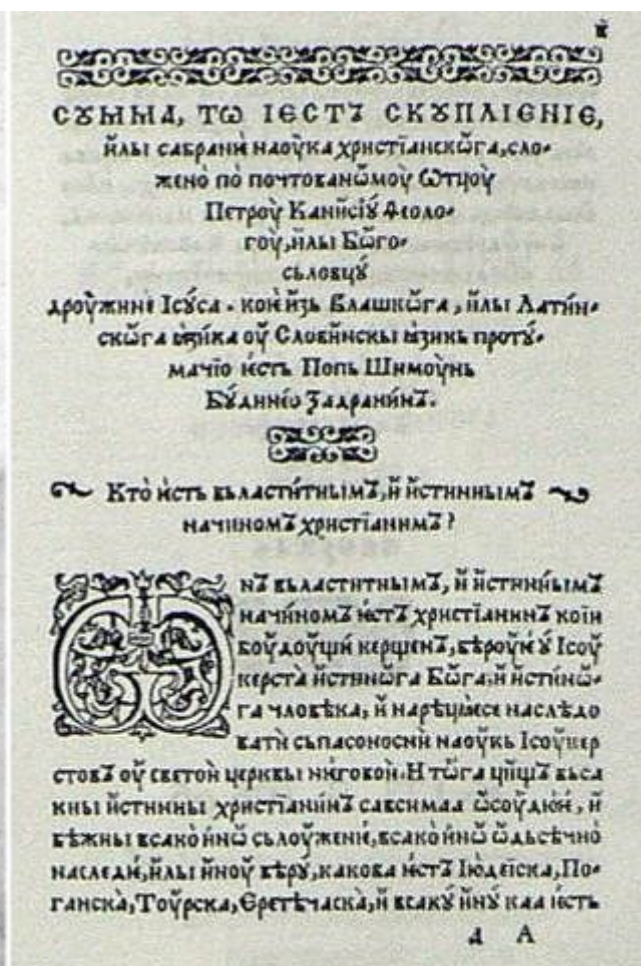 СѸММА, ТѠ ІЄСТЪ СКꙊПЛІЄНІЄ,
и҆лы сабранѝ наѹ҆ка хрнстїанскѡ҆га, сло-
женѡ̀ по̀ почтованѡ҆мѹ Ѿтцѹ
Петрѹ Канисїꙋ́ Ѳеоло-
гѹ҆, и҆лы Бѡ҆го-
сьловцꙋ́
дрѹ҆жине Ісꙋ́са. кои҆ и҆зь Влашкѡ҆га, и҆лы Латы́н-
скѡ҆га ꙗзика ѹ҆ Словы́нскы ꙗзикь протꙋ́-
мачїо и҆есть Попь Шимѹ҆нь
Бꙋ́динеѡ Задранинъ.
Кто̀ и҆сть вьластитнымъ, и҆ и҆стиннымъ
начиномъ хрнстїанимъ?
Ѡнъ вьластитнымъ, и҆ и҆стиннымъ
начи́номъ и҆стъ хрнстїанинъ кои
бѹ҆дѹ҆щи́ керщенъ, вѣрѹ҆и ꙋ́ Ісѹ҆
керста̀ и҆стинѡ҆га Бѡ҆га, и҆ и҆сти́нѡ҆-
га чловѣка, и҆ нарѣцꙗсе наслѣдо
вати̇ сьпасоносни̇ наѹ҆кь Ісѹ҆кер
стовъ ѹ҆ светои̇ церквы ни́говой. И тѡ҆га
и҆стинны хрнстїани́нъ савсима ѡ҆сѹ҆дюи́, и҆
бѣжны всако и҆нѡ҆ сьлѹ҆жени́, всако и҆нѡ҆ ѡ҆дьсѣчно̀
наследи́, и҆лы и҆нѹ҆ вѣрꙋ́, какова и҆стъ Іюдеїска, По-
ганска̀, Тѹ҆рска, Еретѣчаска̀, и҆ всакꙋ́ и҆нꙋ́ каа и҆есть
А